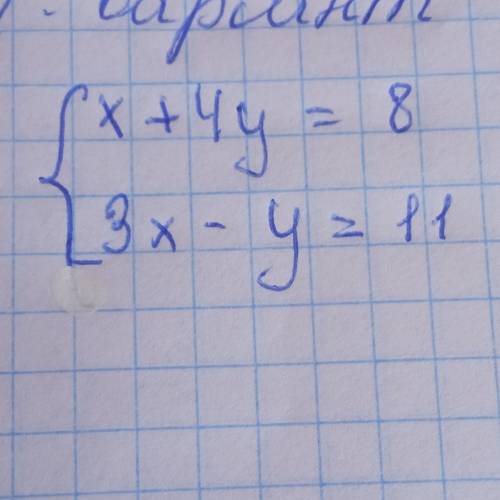 вариант
x + 4y = 8
3x - y = 11